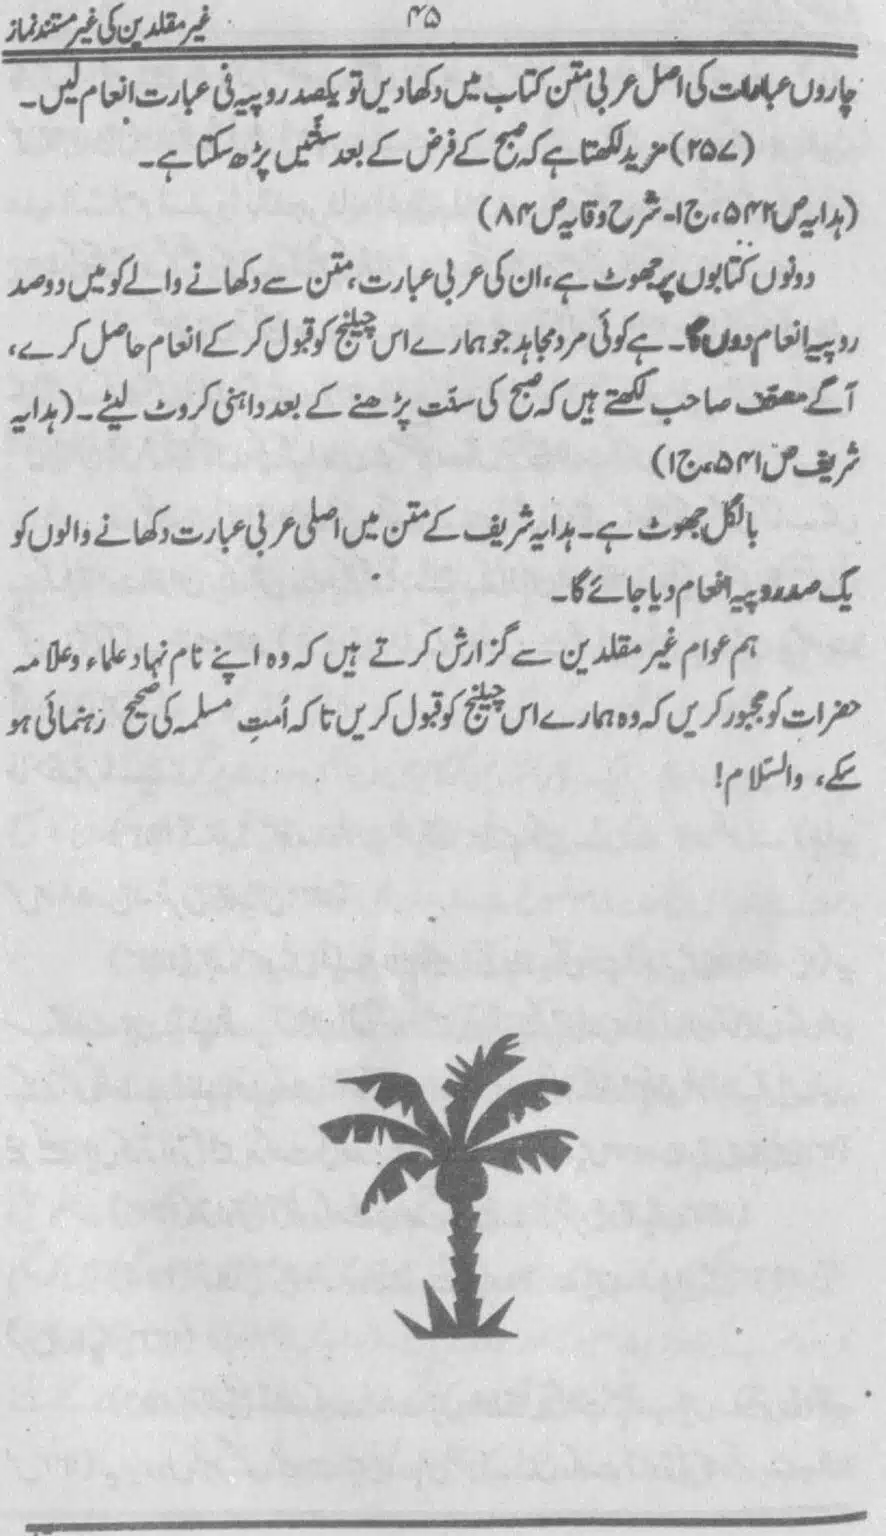 ۴۵
غیر مقلدین کی غیر مستند نماز
چاروں عبارات کی اصل عربی متن کتاب میں دکھادیں تو یکصد روپیہ فی عبارت انعام لیں۔
(۲۵۷) مزید لکھتا ہے کہ صبح کے فرض کے بعد سنتیں پڑھ سکتا ہے۔
(ہدایہ ص ۵۴۲، ج۱- شرح وقایہ ص ۸۴)
دونوں کتابوں پر جھوٹ ہے، ان کی عربی عبارت، متن سے دکھانے والے کو میں دو صد
روپیہ انعام دوں گا۔ ہے کوئی مرد مجاہد جو ہمارے اس چیلنج کو قبول کر کے انعام حاصل کرے،
آگے مصنف صاحب لکھتے ہیں کہ صبح کی سنت پڑھنے کے بعد داہنی کروٹ لیٹے۔ (ہدایہ
شریف ص ۵۴۱، ج۱)
بالکل جھوٹ ہے۔ ہدایہ شریف کے متن میں اصلی عربی عبارت دکھانے والوں کو
یک صد روپیہ انعام دیا جائے گا۔
ہم عوام غیر مقلدین سے گزارش کرتے ہیں کہ وہ اپنے نام نہاد علماء و علامہ
حضرات کو مجبور کریں کہ وہ ہمارے اس چیلنج کو قبول کریں تاکہ اُمتِ مسلمہ کی صحیح رہنمائی ہو
سکے، والسّلام!